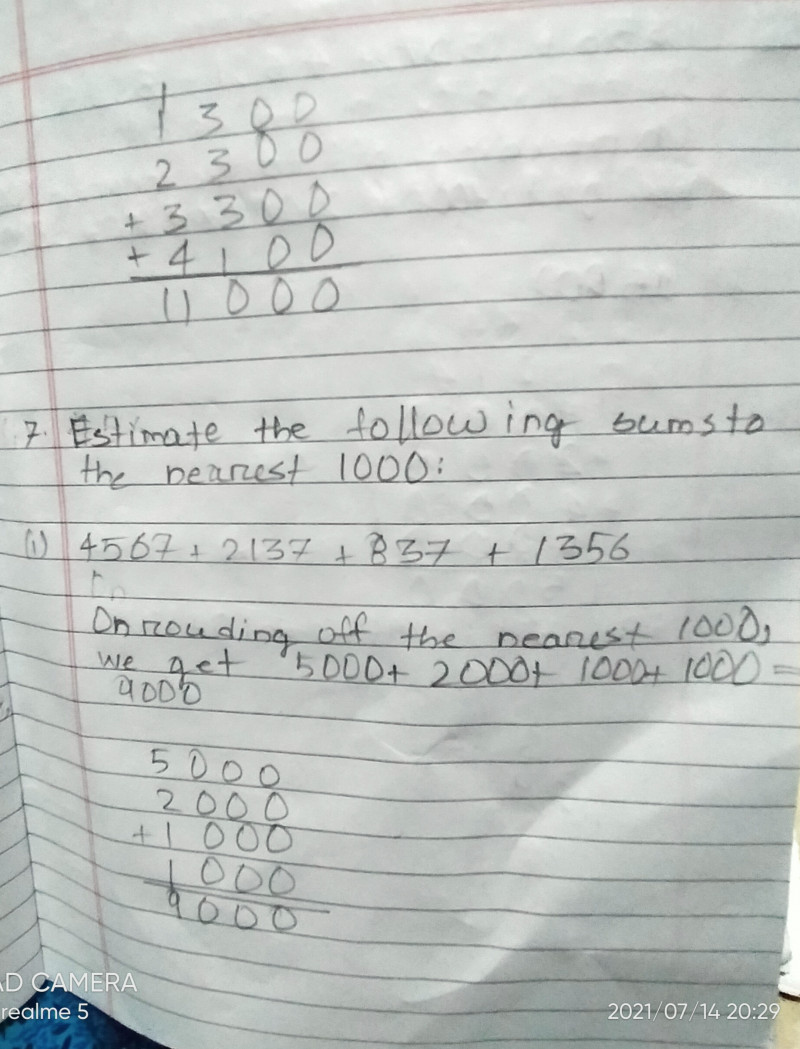 1
1 3 0 0
2 3 0 0
+ 3 3 0 0
+ 4 1 0 0
11 0 0 0
7. Estimate the following sums to
the nearest 1000:
(i) 4567 + 2137 + 837 + 1356
On rouding off the nearest 1000,
we get 5000+ 2000+ 1000+ 1000 =
9000
5 0 0 0
2 0 0 0
+ 1 0 0 0
1 0 0 0
9 0 0 0
AD CAMERA
realme 5
2021/07/14 20:29